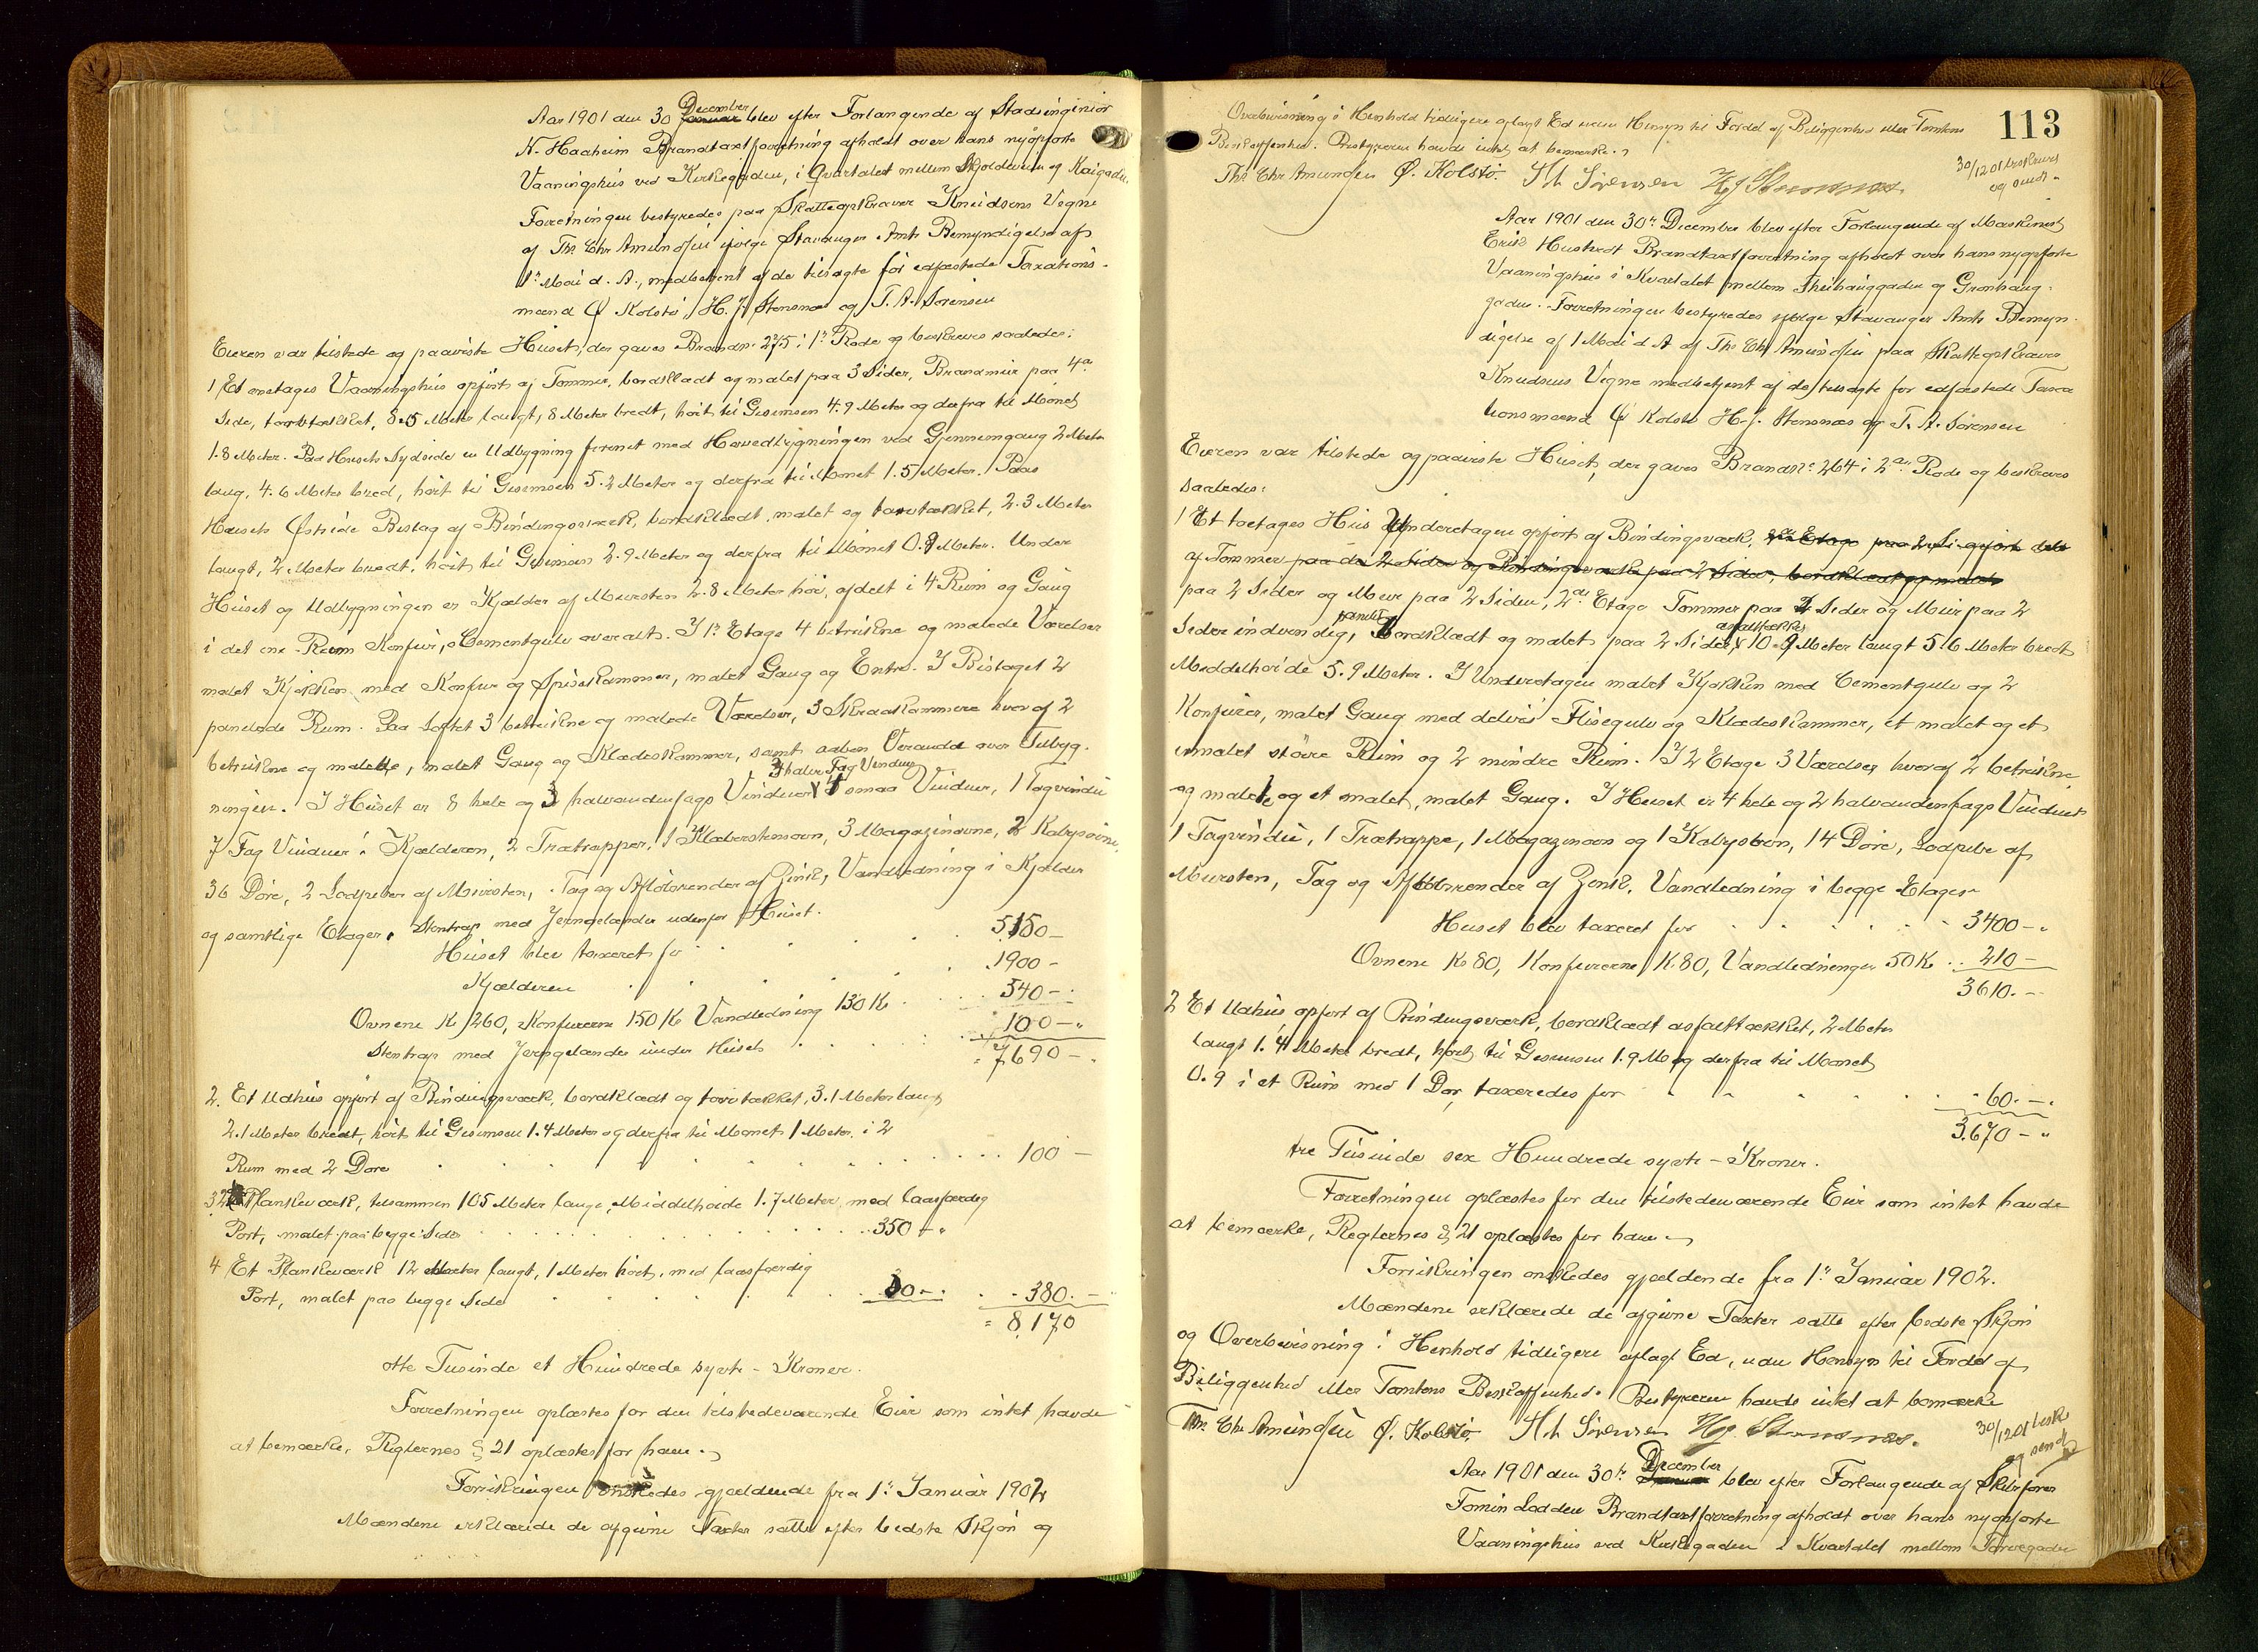 Aar 1901 den 30 December blev efter Forlangende af Stadsingeniør
N. Haaheim Brandtaxtforretning afholdt over hans nyopførte
Vaaningshus ved Kirkegaden, i Qvartalet mellem Skjoldaveien og Kaigaden.
Forretningen bestyredes paa Skatteopkræver Knudsens Vegne
af Ths Chr Amundsen ifølge Stavanger Amts Bemyndigelse af
1ste Mai d. A., medbetjent af de tilsagte før edfæstede Taxations-
mænd Ø Kolstø, H. J. Stensnæs og T. A. Sørensen
Eieren var tilstede og paaviste Huset, der gaves Brandnr 275 i 1ste Rode og beskreves saaledes:
1 Et enetages Vaaningshus opført af Tømmer, bordklædt og malet paa 3 Sider, Brandmur paa 4de
Side, 8.5 Meter langt, 8 Meter bredt, høit til Gesimsen 4.9 Meter og derfra til Mønet
1.8 Meter. Paa Husets Sydside en Udbygning forenet med Hovedbygningen ved Gjennemgang 2 Meter
lang, 4.6 Meter bred, høit til Gesimsen 5.2 Meter og derfra til Mønet 1.5 Meter. Paa
Husets Østside Bislag af Bindingsværk, bordklædt, malet og tavletækket, 2.3 Meter
langt, 2 Meter bredt, høit til Gesimsen 2.9 Meter og derfra til Mønet 0.9 Meter. Under
Huset og Udbygningen er Kjælder af Mursten 2.8 Meter høi, afdelt i 4 Rum og Gang
i det ene Rum Komfur, Cementgulv overalt. I 1ste Etage 4 betrukne og malede Værelser
malet Kjøkken med Komfur og Spisekammer, malet Gang og Entre. I Bislaget 2
panelede Rum. Paa Loftet 3 betrukne og malede Værelser, 3 Skraakammere hvoraf 2
betrukne og malede, malet Gang og Klædeskammer, samt aaben Veranda over Tilbyg-
ningen. I Huset er 8 hele og 3 halvandenfags Vinduer, 3 halve Fag Vinduer 4 smaa Vinduer, 1 Tagvindu
7 Fag Vinduer i Kjælderen, 2 Trætrapper, 1 Klæberstensovn, 3 Magazinovne, 2 Kabysovne,
36 Døre, 2 Lodpiber af Mursten, Tag og Afløbsrender af Zink, Vandledning i Kjælder
og samtlige Etager. Stentrap med Jerngelænder udenfor Huset.
Huset blev taxeret for 5150 –
Kjælderen 1900 –
Ovnene Kr 260, Komfurerne 150 Kr Vandledning 130 Kr 540 –
Stentrap med Jerngelænder under Huset 100 –
7690 –
2. Et Udhus opført af Bindingsværk, bordklædt og tavletækket, 3.1 Meter langt
2.1 Meter bredt, høit til Gesimsen 1.4 Meter og derfra til Mønet 1 Meter, i 2
Rum med 2 Døre 100 –
3 2 Plankeværk, tilsammen 105 Meter lange, Middelhøide 1.7 Meter, med laasfærdig
Port, malet paa begge Sider 350 –
4 Et Plankeværk 12 Meter langt, 1 Meter høit, med laasfærdig
Port, malet paa begge Sider 30 – 380. –
8,170
otte Tusinde et Hundrede sytti – Kroner.
Forretningen oplæstes for den tilstedeværende Eier som intet havde
at bemærke, Reglernes § 21 oplæstes for ham.
Forsikringen ønskedes gjældende fra 1ste Januar 1902
Mændene erklærede de afgivne Taxter satte efter bedste Skjøn og
113
Overbevisning i Henhold tidligere aflagt Ed uden Hensyn til Fordel af Beliggenhed eller Tomtens
Beskaffenhed. Bestyreren havde intet at bemærke.
30/12 01 beskrevet
og sendt
Ths Chr Amundsen Ø. Kolstø. T A Sørensen H J Stensnæs.
Aar 1901 den 30te December blev efter Forlangende af Maskinist
Erik Hustvedt Brandtaxtforretning afholdt over hans nyopførte
Vaaningshus i Kvartalet mellem Skibhauggaden og Grønhaug-
gaden. Forretningen bestyredes ifølge Stavanger Amts Bemyn-
digelse af 1 Mai d A af Ths Chr Amundsen paa Skatteopkræver
Knudsens Vegne medbetjent af de tilsagte før edfæstede Taxa
tionsmænd Ø Kolstø H. J. Stensnæs og T. A. Sørensen
Eieren var tilstede og paaviste Huset, der gaves Brandnr. 264 i 2den Rode og beskreves
saaledes:
1 Et toetages Hus Underetagen opført af Bindingsværk, 2den Etage
af Tømmer paa de 2 Sider og Bindingsværk paa 2 Sider, bordklædt og malet
paa 2 Sider og Mur paa 2 Sider, 2den Etage Tømmer paa 2 Sider og Mur paa 2
Sider indvendig panelet, Bordklædt og malet paa 2 Sider, asfalttækket 10.9 Meter langt 5.6 Meter bredt
Middelhøide 5.9 Meter. I Underetagen malet Kjøkken med Cementgulv og 2
Komfurer, malet Gang med delvis Flisegulv og Klædeskammer, et malet og et
umalet større Rum og 2 mindre Rum. I 2 Etage 3 Værelser hvoraf 2 betrukne
og malede og et malet, malet Gang. I Huset er 4 hele og 2 halvandenfags Vinduer
1 Tagvindu, 1 Trætrappe, 1 Magazinovn og 1 Kabysovn, 14 Døre, Lodpibe af
Mursten, Tag og Afløbsrender af Zink. Vandledning i begge Etager
Huset blev taxeret for 3400 –
Ovnene Kr 80, Komfurerne K. 80, Vandledningen 50 Kr 210 –
3610. –
2 Et Udhus opført af Bindingsværk, bordklædt asfalttækket, 2 Meter
langt 1.4 Meter bredt, høit til Gesimsen 1.9 M og derfra til Mønet
0.9 i et Rum med 1 Dør, taxeredes for 60. –
3.670 –
tre Tusinde sex Hundrede sytti – Kroner.
Forretningen oplæstes for den tilstedeværende Eier som intet havde
at bemærke, Reglernes § 21 oplæstes for ham
Forsikringen ønskedes gjældende fra 1ste Januar 1902.
Mændene erklærede de afgivne Taxter satte efter bedste Skjøn
og Overbevisning i Henhold tidligere aflagt Ed, uden Hensyn til Fordel af
Beliggenhed eller Tomtens Beskaffenhed. Bestyreren havde intet at bemærke
Ths Chr Amundsen Ø. Kolstø. T A Sørensen H J Stensnæs.
30/12 01 besk
og sendt
Aar 1901 den 30te December blev efter Forlangende af Skibsfører
Tomin Lodden Brandtaxtforretning afholdt over hans nyopførte
Vaaningshus ved Kirkegaden i Kvartalet mellem Torvegaden